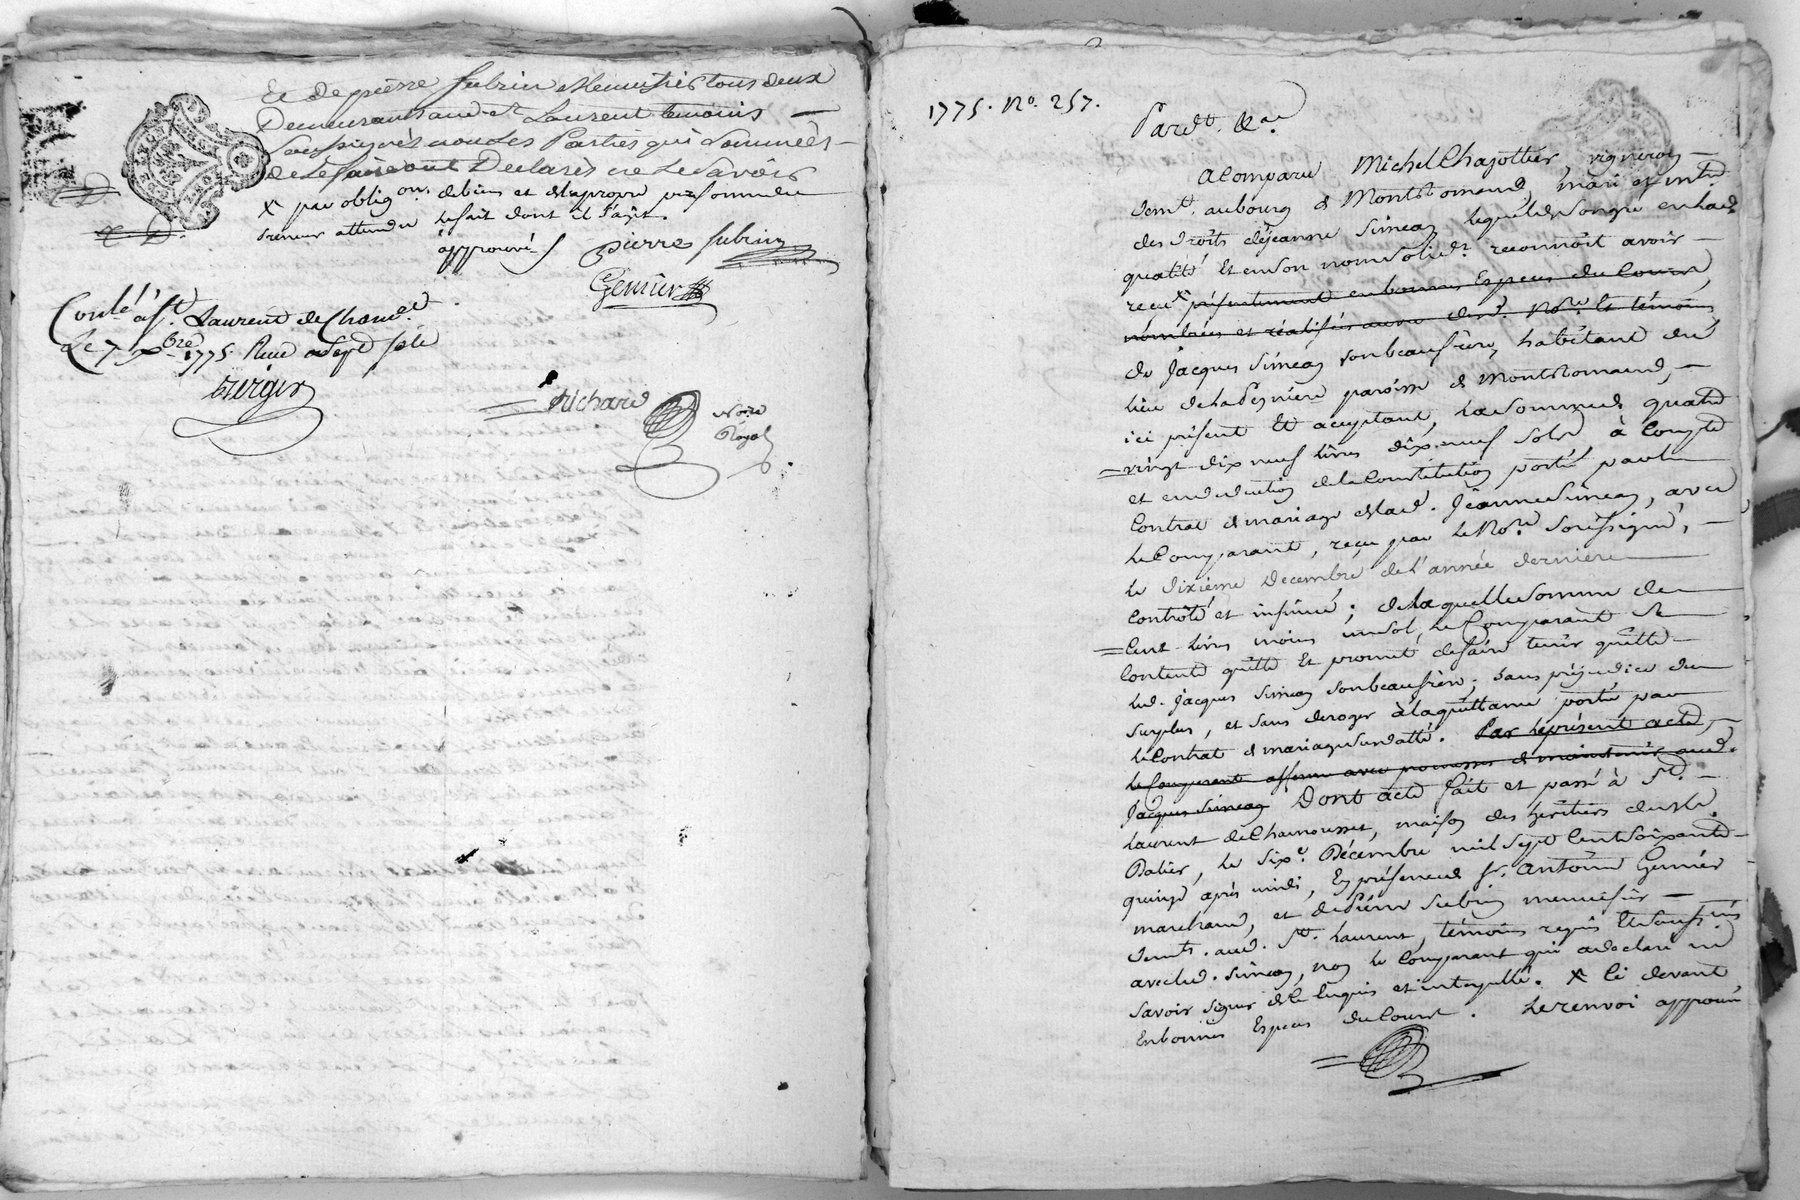 Et de pierre subrin Menuisier tous deux
Demeurant aud. St Laurent temoins
Soussignés non Les Parties qui Sommées
de Le faire ont Declarés ne Le Savoir
X par obligon. de biens et de sa propre personne
attendu le fait dont il s'agit.
approuvé
pierre subrin
Genier
Conlé à St. Laurent de Chamet
Le 7 Xbre 1775. Reçu sept sols
Richard
Nore
Royal
1775. No. 257.
Pardt. &a.
A Comparu Michel Chazottier, vigneron
demt. au bourg de Montromand, mari et mtre
des droits de jeanne Simean, lequel de son gré en lad.
qualité et en son nom solide. reconnoit avoir
recu X présentement en bonnes Espèces du Cours,
nombrées et réalisées au vu dud. Nore. Et témoins
de Jacques Simean son beaufrère, habitant du
lieu de la paroisse de Montromand,
ici présent et acceptant, la somme de quatre
vingt dix neuf livres dix neuf sols, à Compte
et en déduction de la Constitution portée par le
Contrat de mariage de lad. Jeanne Simean, avec
le Comparant, reçu par le Nore. soussigné,
le dixième Decembre de l'année dernière
Controlé et insinué; de laquelle somme de
Cent livres moins un sol, le Comparant se
Contente quitte Et promet de faire tenir quitte
led. Jacques Simean son beaufrère; sans préjudice du
surplus, et sans deroger à la quittance portée par
le Contrat de mariage susdatté. Par le présent acte,
le Comparant affirme avec promesses de maintenir aud.
Jacques Simean Dont acte fait et passé à St.
Laurent de Chamousset, maison des héritiers de
Batier, le sixe. Décembre mil sept Cent soixante
quinze après midi, En présence de sr. Antoine Genier
marchand, et de Pierre Subrin menuisier
demts. aud. St. Laurent, témoins requis Et soussignés
avec led. Simean, non le Comparant qui a déclaré ne
savoir signer de ce Enquis et interpellé. X Ci devant
En bonnes Espèces du Cours. Le renvoi approuvé